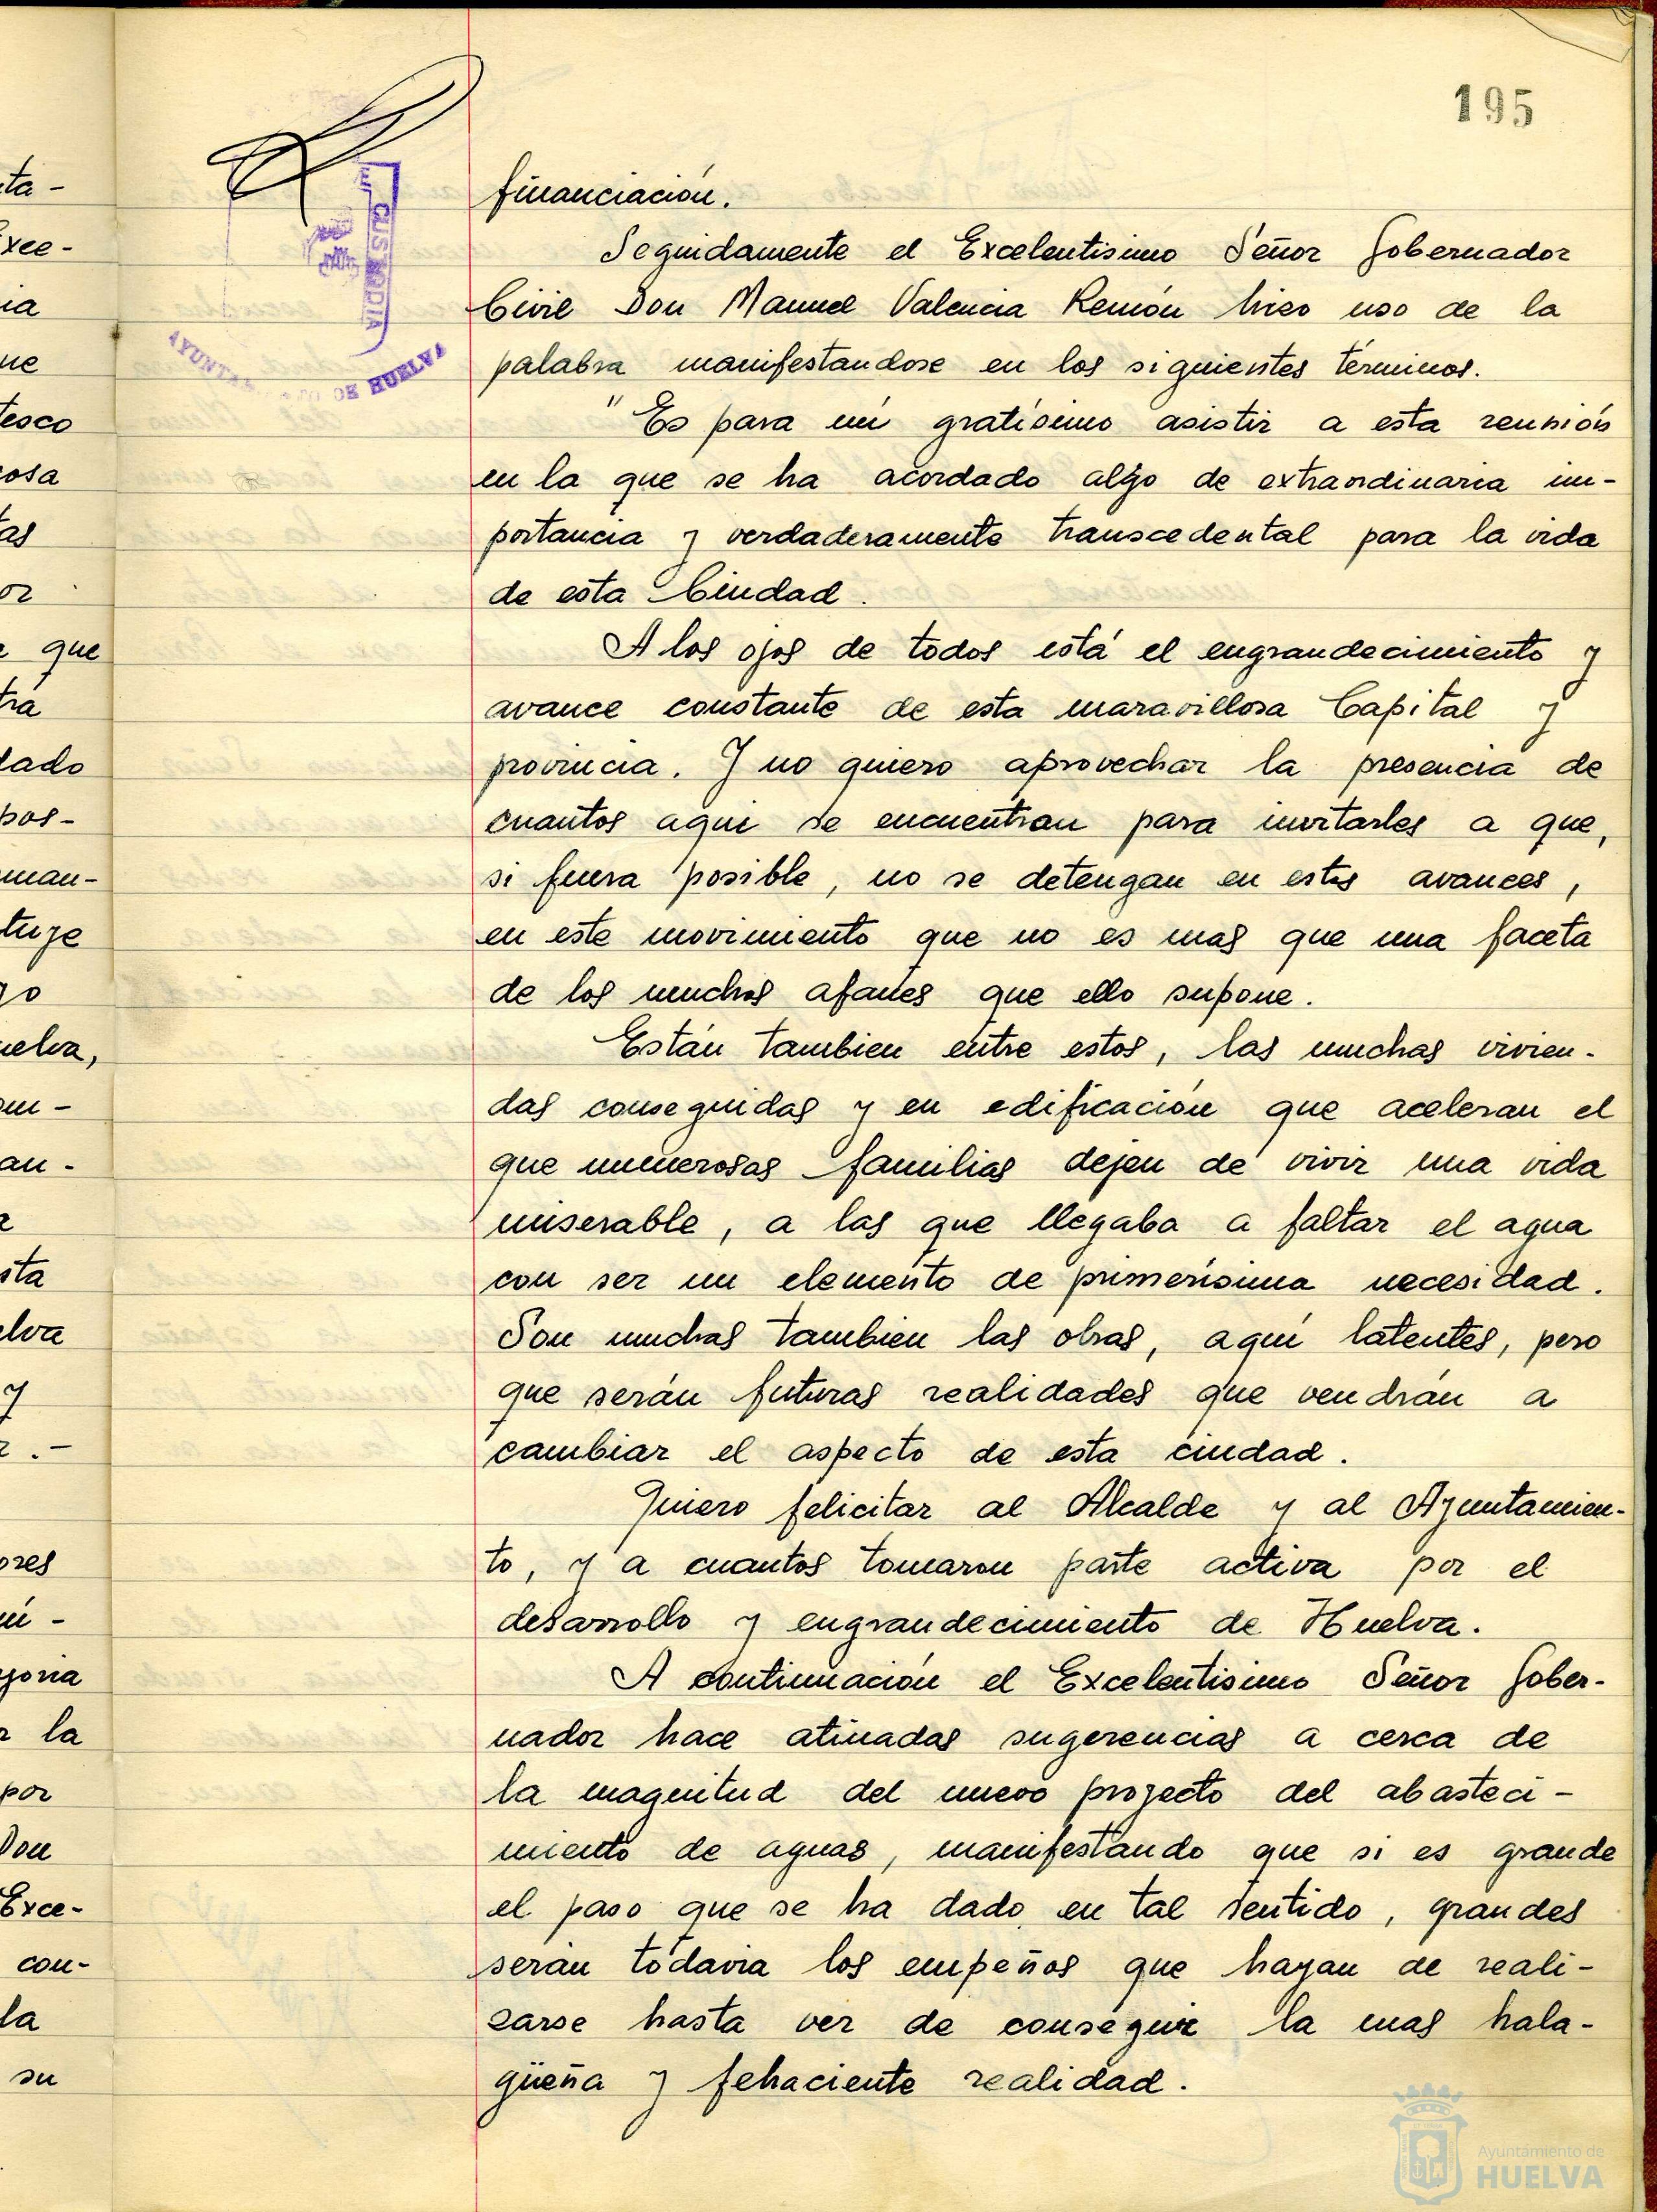 195
financiación.
Seguidamente el Excelentisimo Señor Gobernador
Civil Don Manuel Valencia Remón hizo uso de la
palabra manifestandose en los siguientes términos.
"Es para mí gratísimo asistir a esta reunión
en la que se ha acordado algo de extraordinaria im-
portancia y verdaderamente transcedental para la vida
de esta Ciudad.
A los ojos de todos está el engrandecimiento y
avance constante de esta maravillosa Capital y
provincia. Y no quiero aprovechar la presencia de
cuantos aqui se encuentran para invitarles a que,
si fuera posible, no se detengan en estos avances,
en este movimiento que no es mas que una faceta
de los muchos afanes que ello supone.
Están tambien entre estos, las muchas vivien-
das conseguidas y en edificación que aceleran el
que numerosas familias dejen de vivir una vida
miserable, a las que llegaba a faltar el agua
con ser un elemento de primerísima necesidad.
Son muchas tambien las obras, aquí latentes, pero
que serán futuras realidades que vendrán a
cambiar el aspecto de esta ciudad.
Quiero felicitar al Alcalde y al Ayuntamien-
to, y a cuantos tomaron parte activa por el
desarrollo y engrandecimiento de Huelva.
A continuación el Excelentisimo Señor Gober-
nador hace atinadas sugerencias a cerca de
la magnitud del nuevo proyecto del abasteci-
miento de aguas, manifestando que si es grande
el paso que se ha dado en tal sentido, grandes
serán todavia los empeños que hayan de reali-
zarse hasta ver de conseguir la mas hala-
güeña y fehaciente realidad.
CUSTODIA
DE HUELVA
ta-
Exce-
ia
ue
tesco
cosa
tas
or
que
trá
dado
pos-
man-
tuye
go
uelva,
om-
an-
sta
elva
y
ores
goria
la
por
Don
Exce-
con-
la
su
Ayuntamiento de
HUELVA